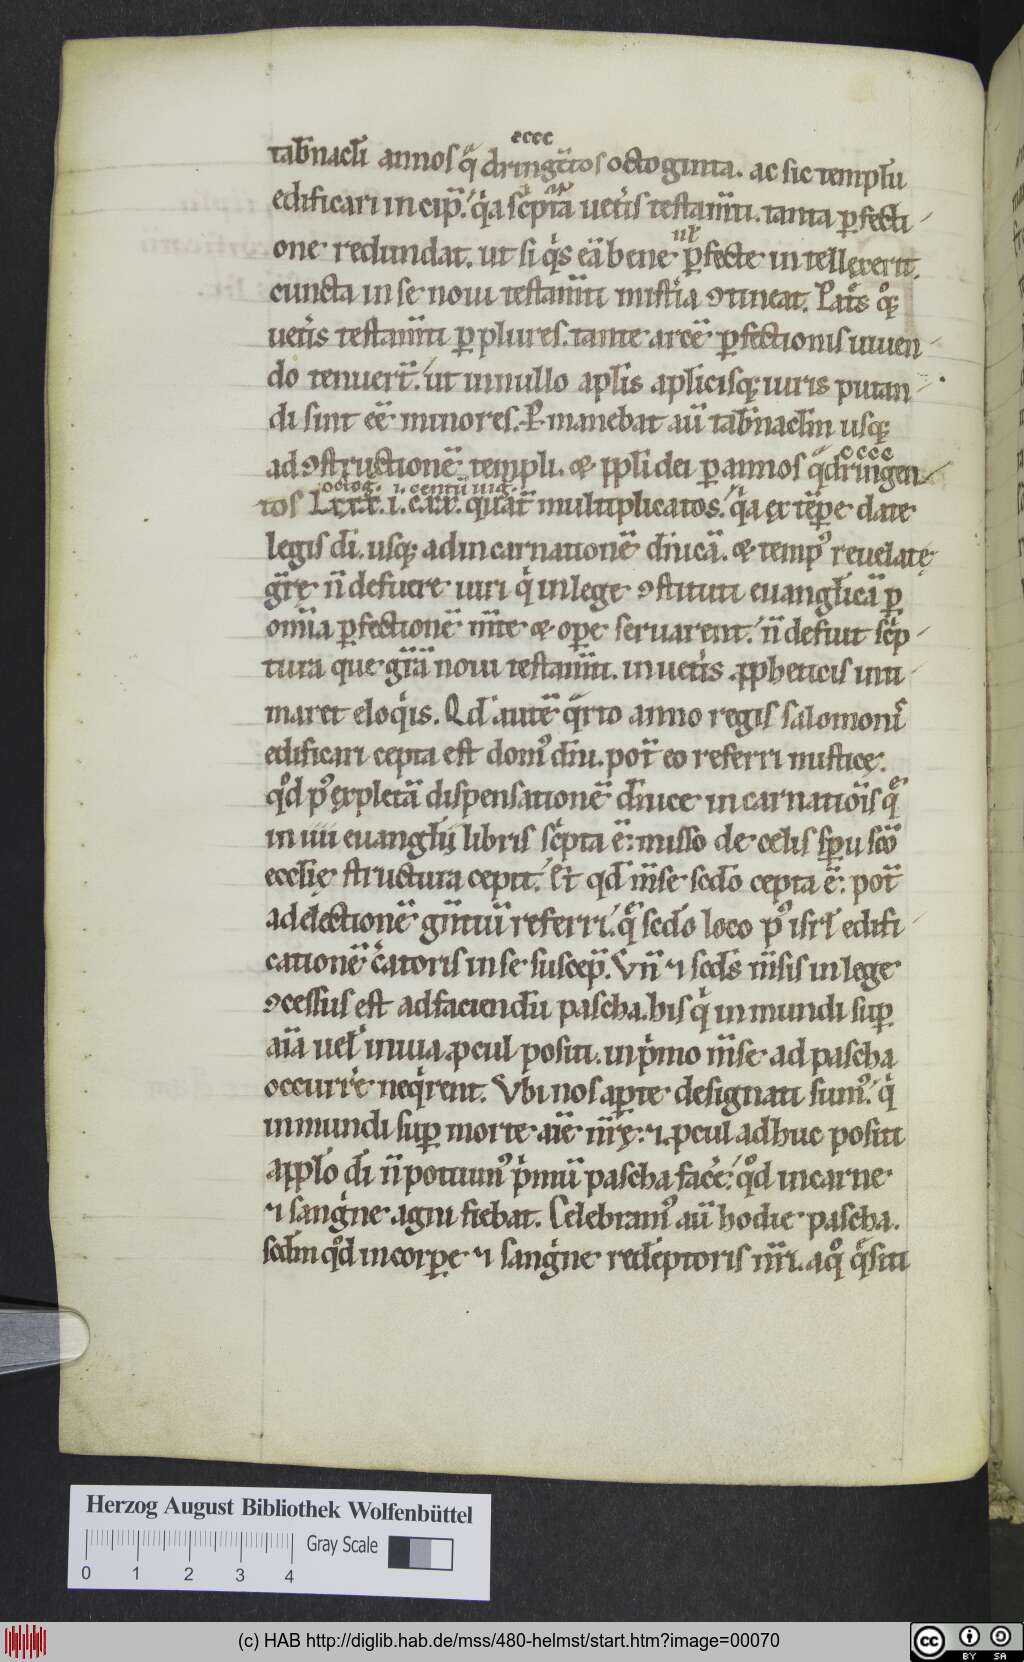 cccc
tab̄nacl̄i annos q̃dringẽtos octoginta. ac sic templ̄u
edificari incip̄. q̇a sc̄pt̃a uet̓is testam̄ti. tanta ꝑfecti
ul̄
one redundat. ut si q̇s eā bene ꝑfecte intellexerit.
cuncta in se noui testam̄ti mist̓ia ꝯtineat. Pat̓s qͦꝫ
uet̓is testam̄ti ꝑ plures. tante arcē ꝑfectionis uiuen
do tenuer̄. ut in nullo apl̄is apl̄icisqꝫ uiris putan
di sint eē minores. P manebat aū tab̄nacl̄m usqꝫ
cccc
ad ꝯstructionē templi. ⁊ ppl̄i dei ꝑ annos q̃dringen
octog. i. centū uig.
tos Lxxx. i. c.xx. quat̄ multiplicatos. q̇a ex tēpe date
legis dī. usqꝫ ad incarnationē dn̄icā. ⁊ tempꝰ reuelatę
gr̄ę n̄ defuere uiri q̇ in lege ꝯstituti euangl̄icā ꝑ
om̄ia ꝑfectionē m̄te ⁊ ope seruarent. n̄ defuit sc̓p
tura que gr̄ā noui testam̄ti. in uet̓is ꝓpheticis inti
maret eloq̇is. Qd̄ autē q̃rto anno regis salomonis
edificari cepta est domꝰ dn̄i. pot̄ eo referri mistice.
qͦd pꝰ expletā dispensationē dn̄ice incarnatiōis q̄
in iiii euangl̄ii libris sc̓pta ē. misso de celis sp̄u sc̄o
eccl̄ię structura cepit. Et qd̄ m̄se sc̄do cepta ē. pot̄
ad electionē gn̄tiū referri. q̄ sc̄do loco pꝰ isrl̄ edifi
cationē c̓atoris in se suscep̄. Vn̄ ⁊ sc̄ds m̄sis in lege
ꝯcessus est ad faciend̄u pascha. his q̇ inmundi sup
aīa uel̄ in uia ꝓcul positi. in p̓mo m̄se ad pascha
occurr̓e neq̇rent. Vbi nos apte designati sumꝰ. q̇
inmundi sup morte aīe nr̄ę. ⁊ ꝓcul adhuc positi
a ppl̄o dī n̄ potuimꝰ p̓mū pascha fac̓e. qͦd in carne
⁊ sang̓ne agni fiebat. Celebramꝰ aū hodie pascha.
sc̄dm qͦd in corpe ⁊ sang̓ne redēptoris nr̄i. a qͦ q̓siti
Herzog August Bibliothek Wolfenbüttel
Gray Scale
0 1 2 3 4
(c) HAB http://diglib.hab.de/mss/480-helmst/start.htm?image=00070
cc BY SA